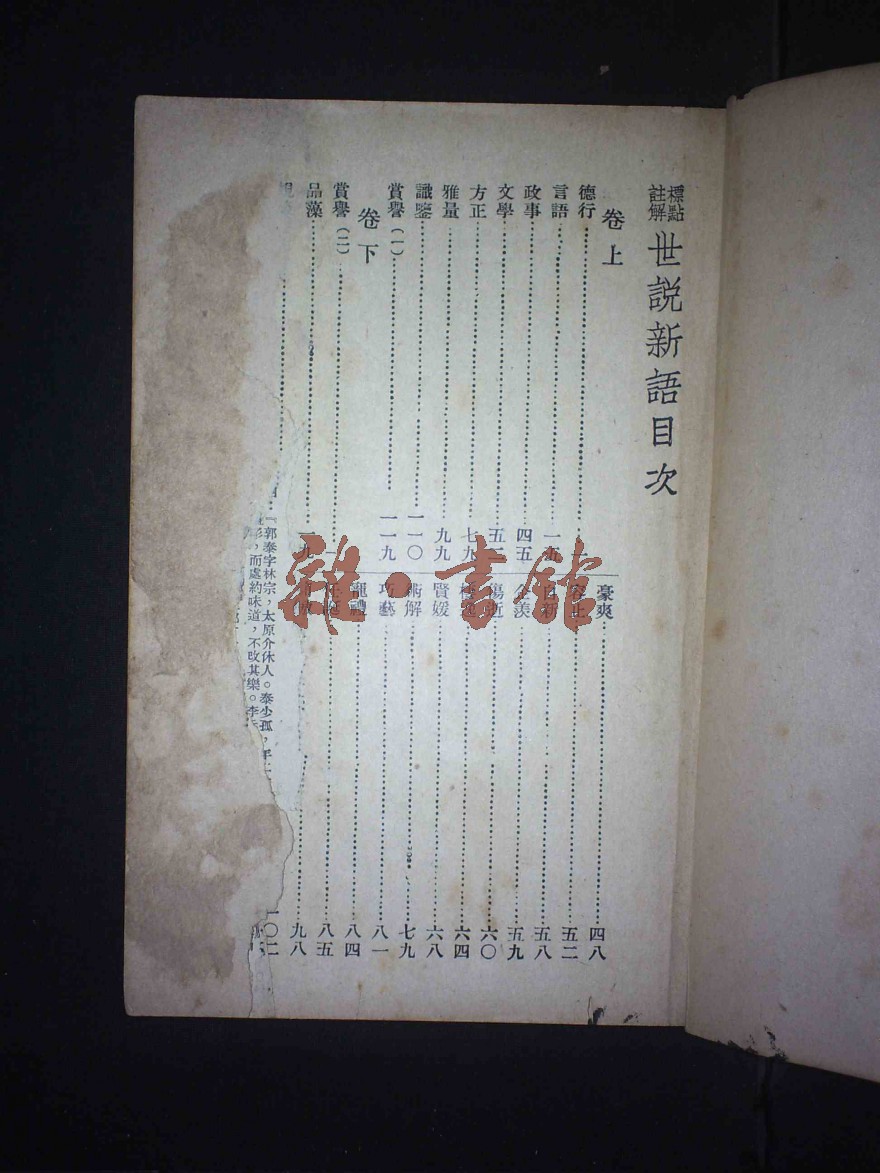 標點註解 世説新語目次
卷上
德行
言語
政事 四五
文學
方正
雅量 九九
識鑒 一一〇
賞譽(一) 一一九
卷下
賞譽(二)
品藻
豪爽 四八
容止 五二
自新 五八
企羨 五九
傷逝 六〇
棲逸 六四
賢媛 六八
術解 七九
巧藝 八一
寵禮 八四
任誕 八五
九八
一〇二
『郭泰字林宗，太原介休人。泰少孤，年
而處約味道，不改其樂。李
雜·書館